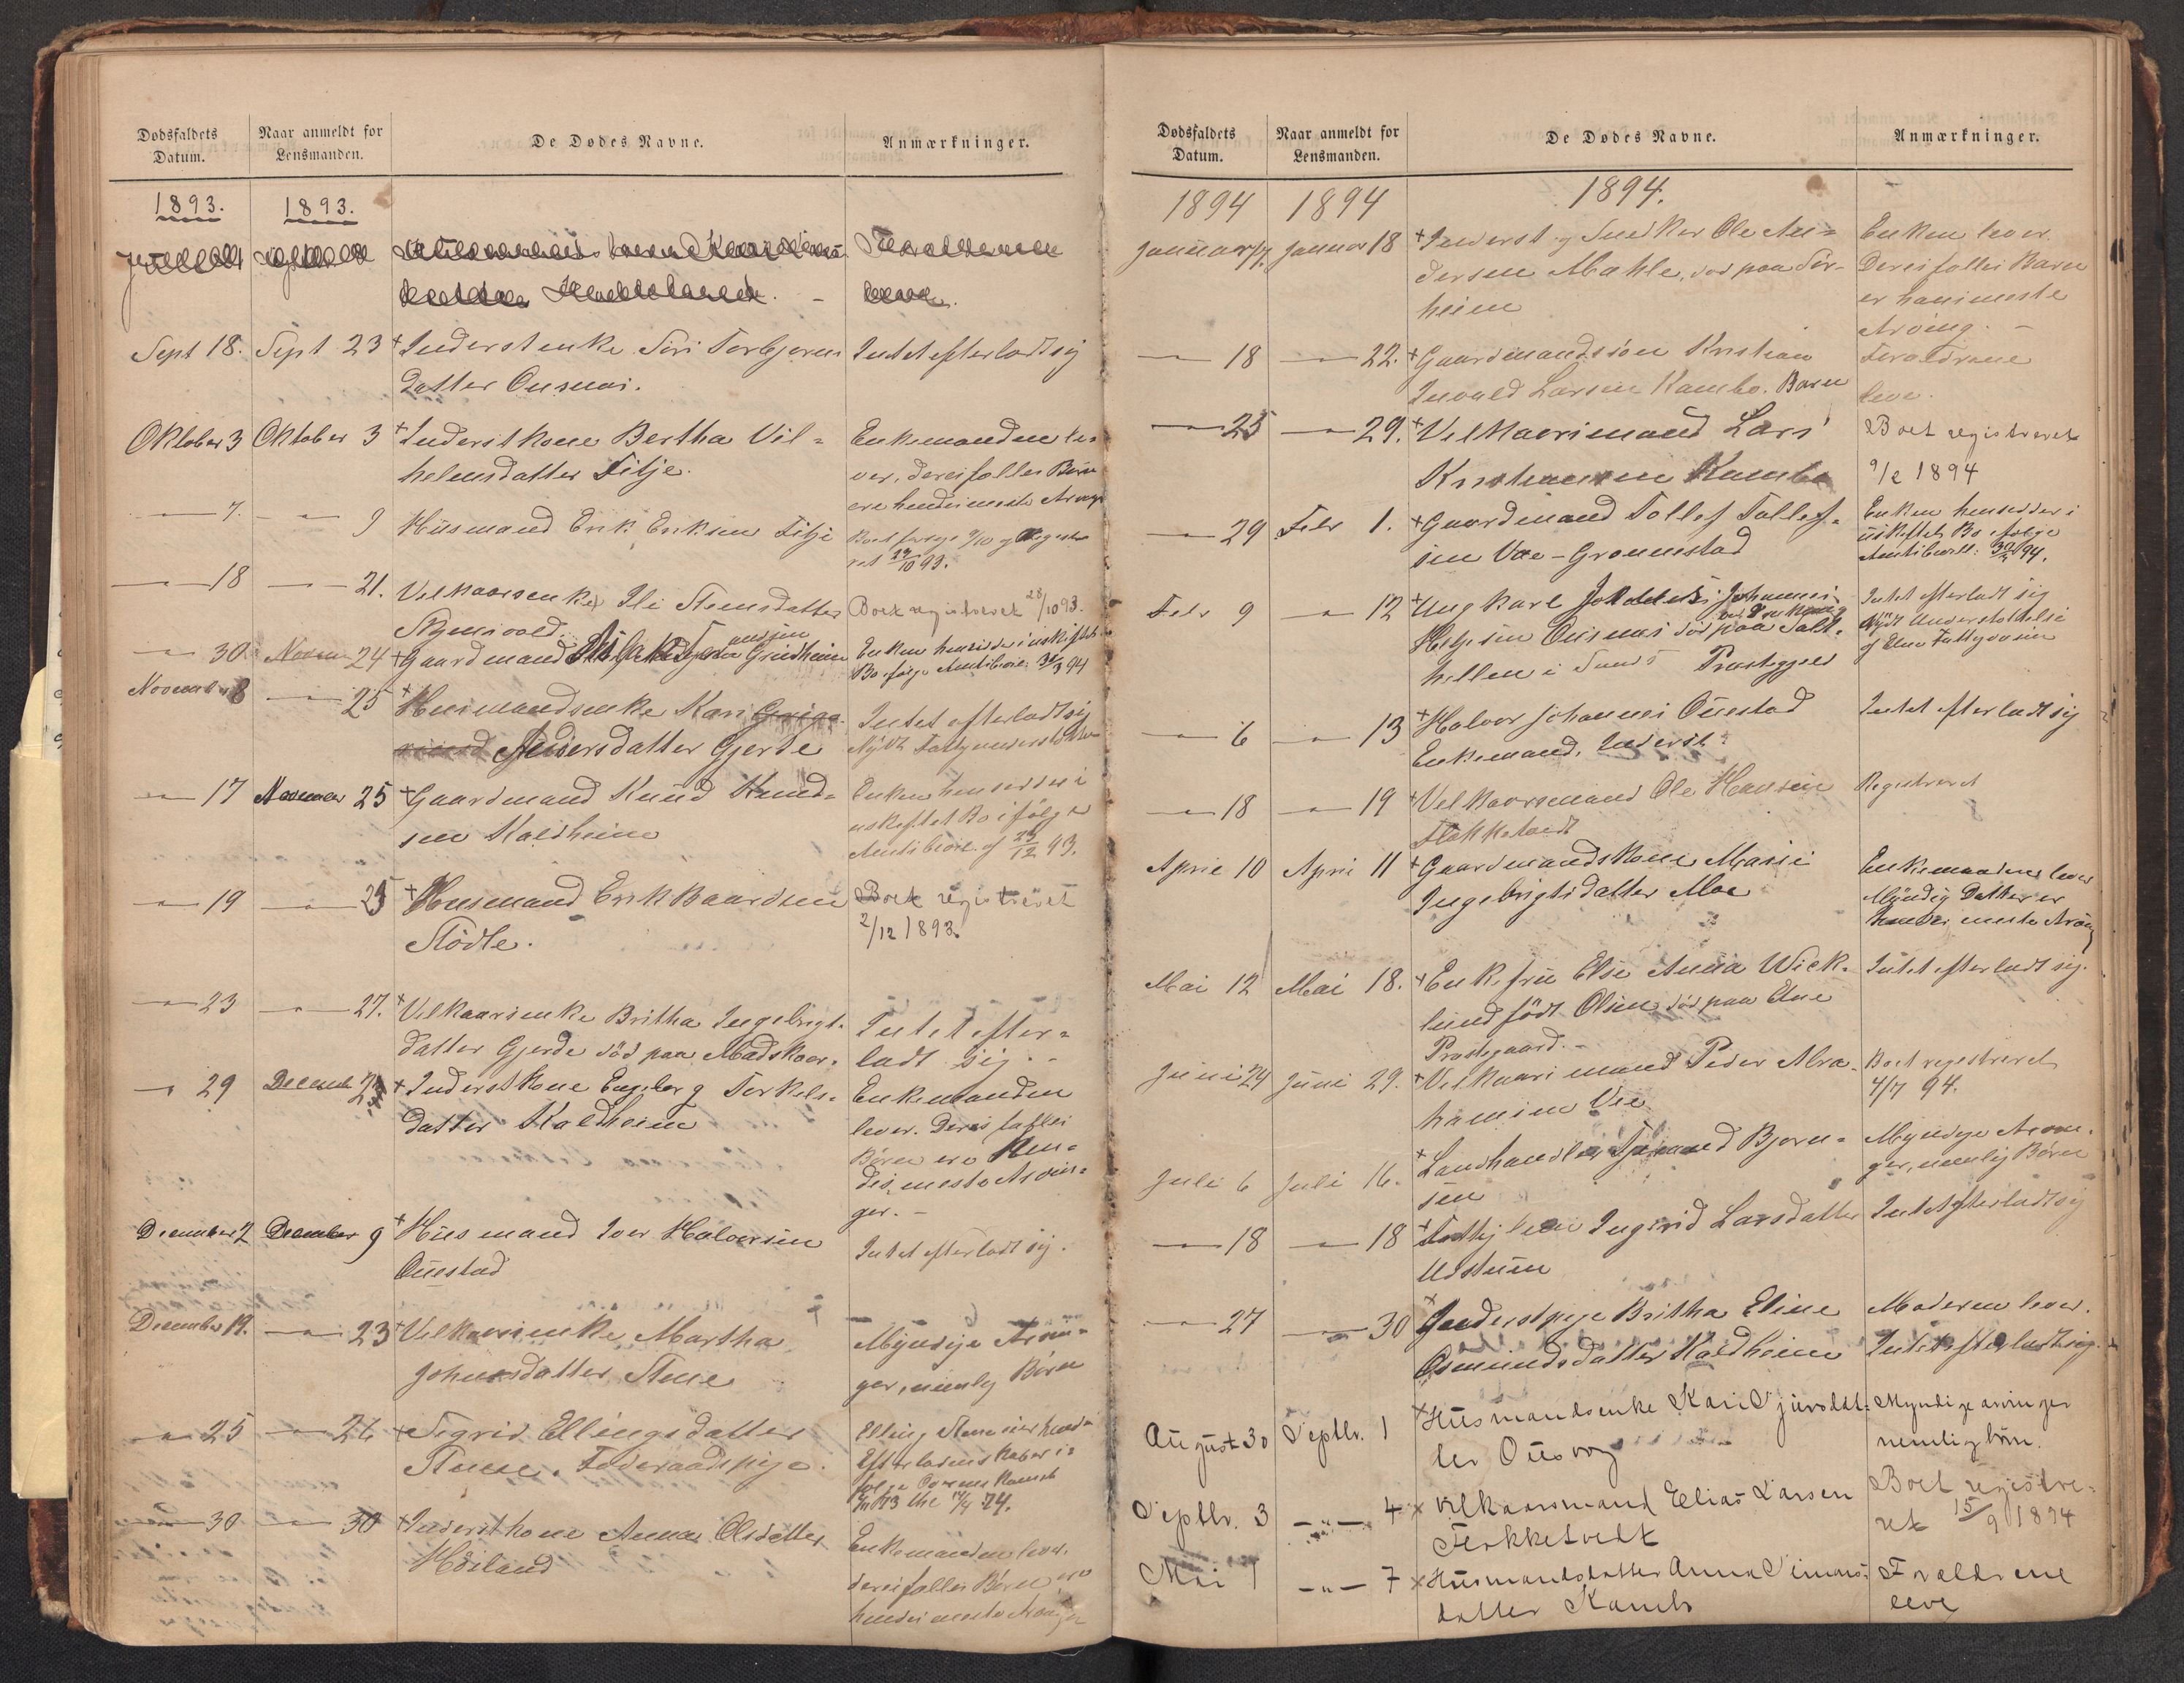 Dødsfaldets Datum.
Naar anmeldt for Lensmanden.
De Dødes Navne.
Anmærkninger.
1893.
1893.
Sept 18. Sept 23 + Inderstenke Siri Torbjørns
datter Ousnæs.
Intet efterladt sig
Oktober 3 Oktober 3 + Inderstkone Bertha Vil=
helmsdatter Fitje.
Enkemanden le-
ver, deres fælles Børn
ere hendes næste Arvinger
— 7. — 9 Husmand Erik Eriksen Fitje
— 18 — 21. Velkaarsenke Steensdatter
Boet registreret 28/10 93.
— 30. Novem 24 + Gaardmand Grindheim
Enken hensidder i uskiftet
Bo ifølge
November 8 — 25 + Husmandsenke Kari
Andersdatter Gjerde
Intet efterladt sig
— 17 November 25 + Gaardmand Knud Knud=
sen Kaldheim
Enken hensidder i
uskiftet Bo ifølge
Amtsbevil. af 23/12 93.
— 19 — 25 + Husmand Erik Baardsen
Stødle.
Boet registreret
2/12 1893.
— 23 — 27. + Velkaarsenke Britha Ingebrigt-
datter Gjerde død paa Madskaar.
Intet efter=
ladt sig. -
— 29 December 2 + Inderstkone Engeborg Torkels=
datter Kaldheim
Enkemanden
lever. Deres fælles
Børn ere hen=
des næste Arvin=
ger. -
December 2 December 9 + Husmand Iver Halvorsen
Ouestad
Intet efterladt sig.
December 19. — 23 + Velkaarsenke Martha
Johansdatter Stene
Myndige Arvin=
ger, nemlig Børn
— 25 — 26 + Sigrid Ellingsdatter
Stene, Føderaadspige.
— 30 — 30 + Inderstkone Anna Olsdatter
Høiland
Enkemanden lever.
deres fælles Børn ere
hendes næste Arvinger
Dødsfaldets Datum.
Naar anmeldt for Lensmanden.
De Dødes Navne.
Anmærkninger.
1894 1894 1894.
Januar Januar 18 + Inderst og Snedker Ole An=
dersen Mæhle, død paa Sør-
heim
Enken lever
Deres fælles Barn
er hans næste
Arving. -
— 18 — 22. + Gaardmandssøn Kristian
Larsen Kambo. Barn
Forældrene
leve.
— 25 — 29. + Velkaarsmand Lars
Kristensen Kambo
Boet registreret
9/2 1894
— 29 Febr 1. + Gaardmand Tollef Tollef-
sen Vae - Grønnestad
Enken hensidder i
uskiftet Bo ifølge
Febr 9 — 12 + Ungkarl Johannes
Helgesen Ousnæs død paa
Præstegjeld
Intet efterladt sig
Nydt Understøttelse
af Etne Fattigvæsen
— 6 — 13 + Halvor Johannes Ouestad
Enkemand. Inderst.
Intet efterladt sig
— 18 — 19 + Velkaarsmand Ole Hansen
Flokketvedt
Registreret
April 10 April 11 + Gaardmandskone Marie
Ingebrigtsdatter Moe
Enkemanden lever
Myndig Datter er
hendes næste Arving
Mai 12 Mai 18. + Enkefru Else Anna Wick-
lund født Olsen, død paa Etne
Præstegaard. -
Intet efterladt sig.
Juni 24 Juni 29. + Velkaarsmand Peder Abra-
hamsen Vie
Boet registreret
4/7 94.
Juli 6 Juli 16. + Landhandler Bjørn=
sen
Myndige Arvin-
ger, nemlig Børn
— 18 — 18 + Fattiglem Ingrid Larsdatter
Intet efterladt sig
— 27 — 30 + Inderstpige Britha Eline
Osmundsdatter Kaldheim
Moderen lever.
Intet efterladt sig.
August 30 Septbr. 1 + Husmandsenke Kari Sjursdat=
ter Ousvog
Myndige arvinger
nemlig børn.
Septbr. 3 — 4 × Vilkaarsmand Elias Larsen
Flokketvedt
Boet registre-
ret 15/9 1894
Mai 7 — 7 × Husmandsdatter Anna Simons=
datter Kambo
Forældrene
leve